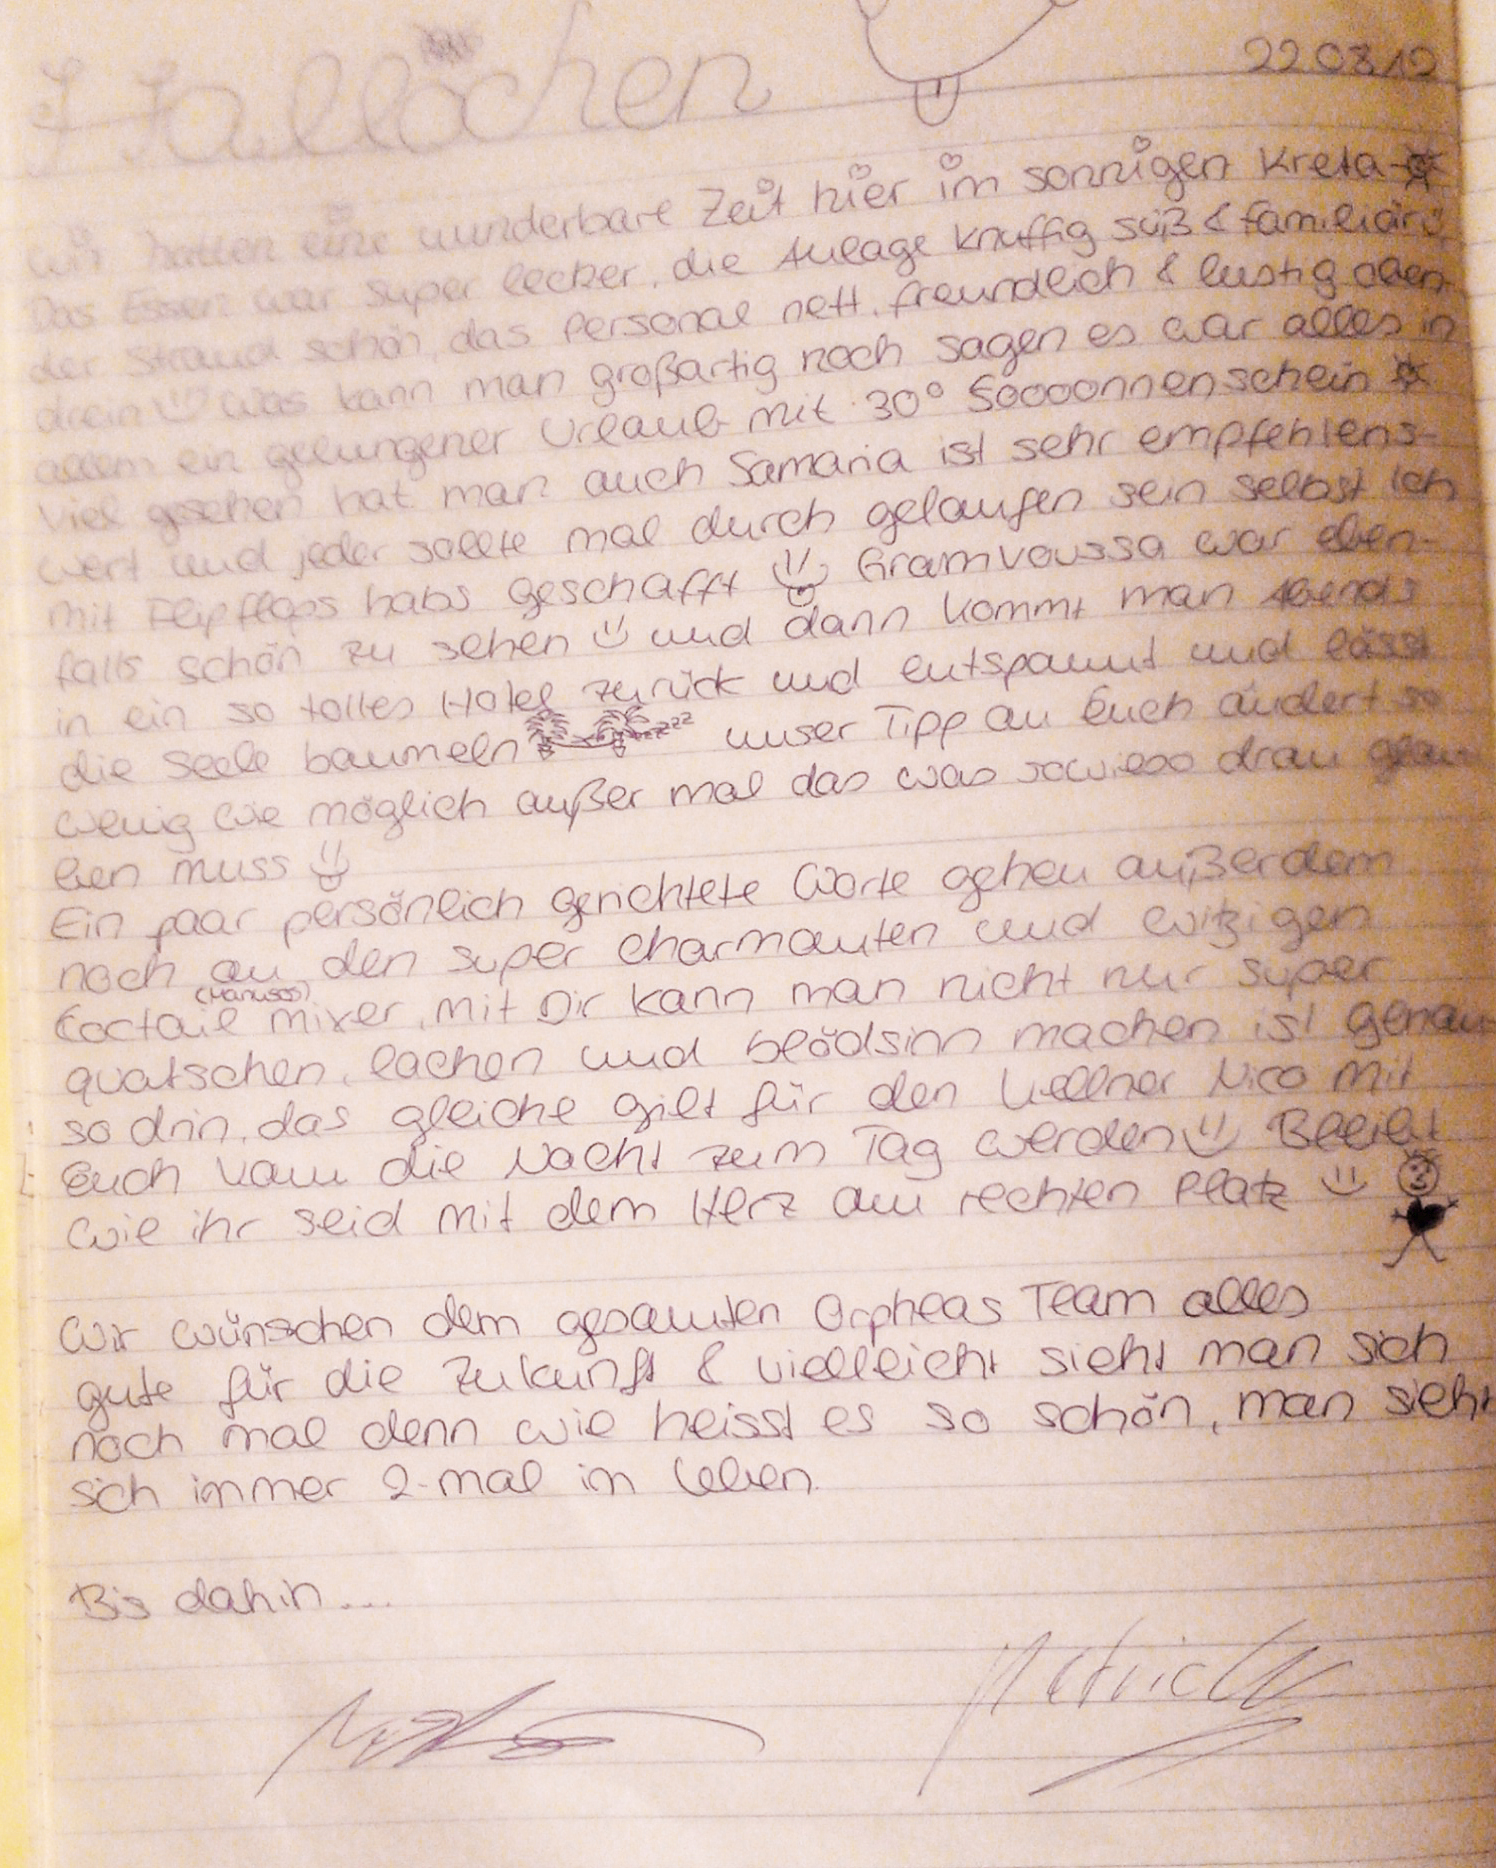 Hallöchen
22 08 12
wir hatten eine wunderbare Zeit hier im sonnigen Kreta
Das Essen war super lecker, die Anlage knuffig süß & familiär,
der Strand schön, das Personal nett, freundlich & lustig oben
drein was kann man großartig noch sagen es war alles in
allem ein gelungener Urlaub mit 30° Soooonnenschein
Viel gesehen hat man auch Samaria ist sehr empfehlens-
wert und jeder sollte mal durch gelaufen sein selbst ich
mit Flipflops habs geschafft Gramvoussa war eben-
falls schön zu sehen und dann kommt man Abends
in ein so tolles Hotel zurück und entspannt und lässt
die Seele baumeln zzz unser Tipp an Euch ändert so
wenig wie möglich außer mal das was sowieso dran glau
ben muss
Ein paar persönlich gerichtete Worte gehen außerdem
noch an den super charmanten und witzigen
(Manusos)
Coctail mixer, mit Dir kann man nicht nur super
quatschen, lachen und blödsinn machen ist genau-
so drin, das gleiche gilt für den Kellner Nico mit
Euch kann die Nacht zum Tag werden Bleibt
wie ihr seid mit dem Herz am rechten Platz
Wir wünschen dem gesamten Orpheas Team alles
gute für die Zukunft & vielleicht sieht man sich
noch mal denn wie heisst es so schön, man sieht
sich immer 2-mal im Leben.
Bis dahin...